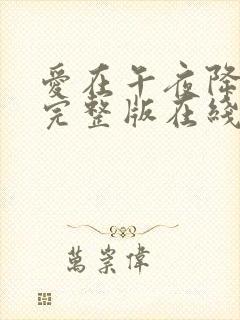 愛在午夜降
完整版在綫
萬崇偉